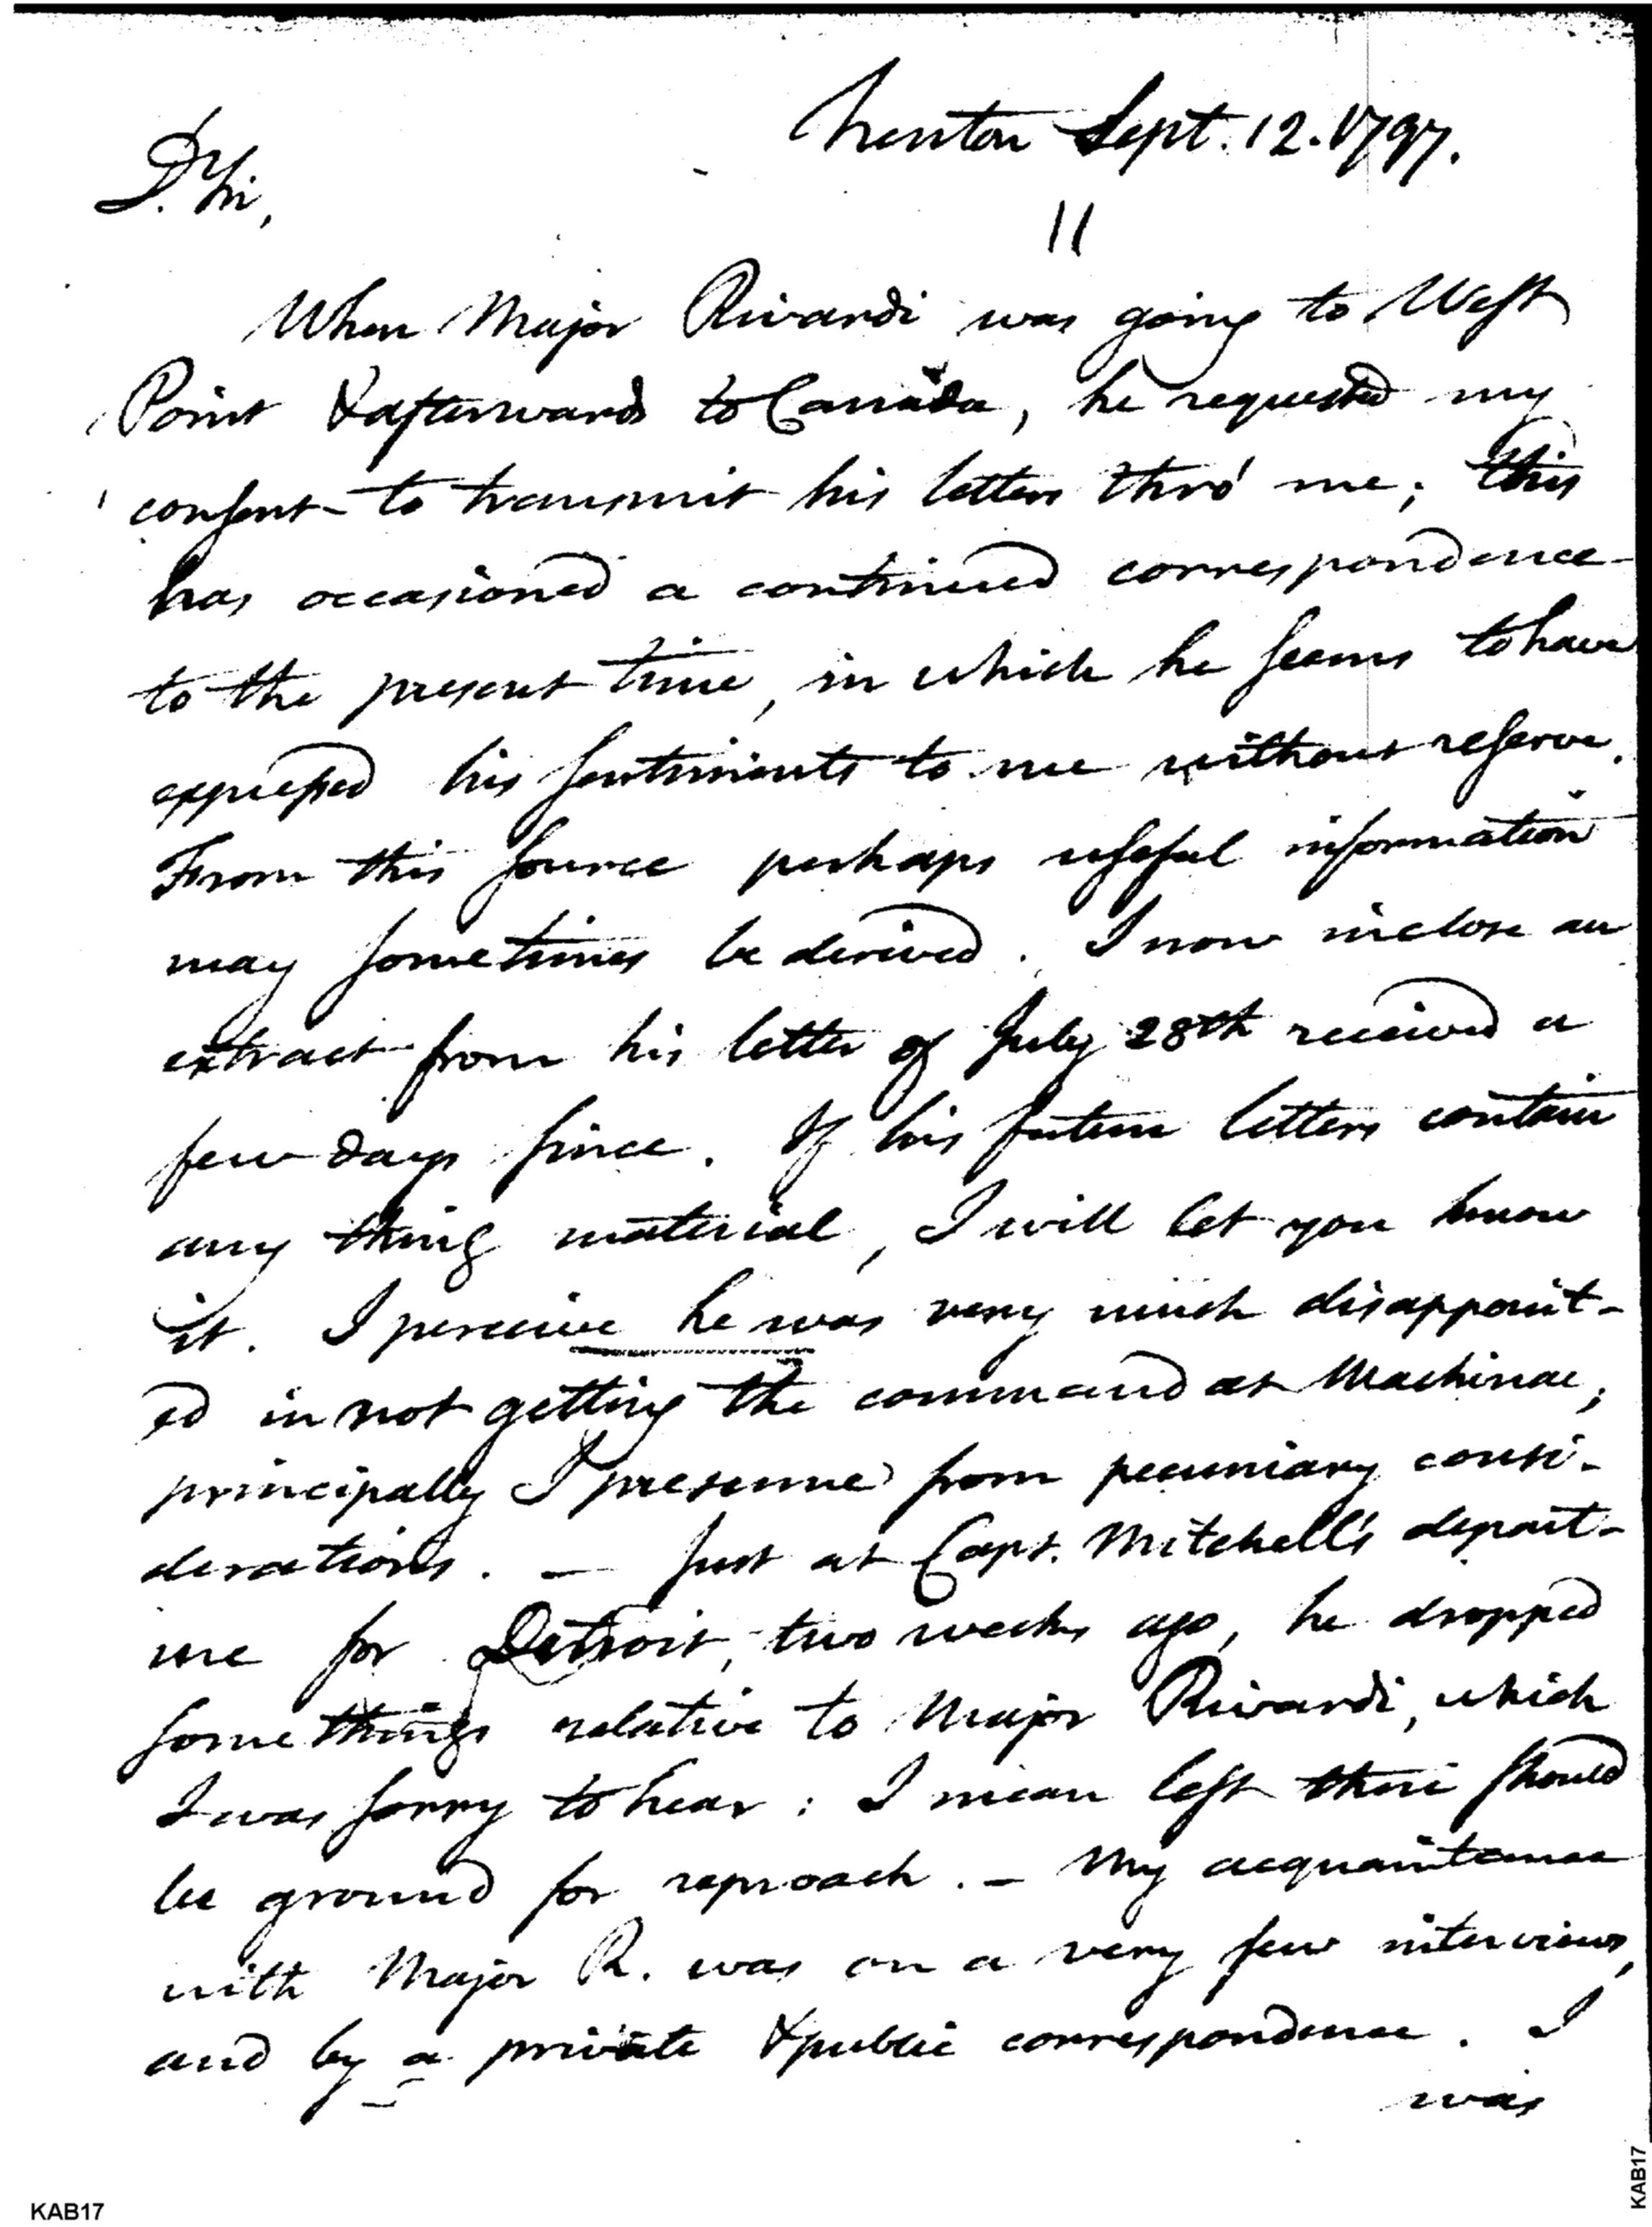 Trenton Sept. 12. 1797.
Dr. Sir,
11
When Major Rivardi was going to West
Point & afterwards to Canada, he requested my
consent to transmit his letters thro' me; this
has occasioned a continued correspondence
to the present time, in which he seems to have
expressed his sentiments to me without reserve.
From this source perhaps useful information
may sometimes be derived. I now inclose an
extract from his letter of July 28th received a
few days since. If his future letters contain
any thing material, I will let you know
it. I perceive he was very much disappoint-
ed in not getting the command at Machinac,
principally I presume from pecuniary consi-
derations. — Just at Capt. Mitchell's depart-
ure for Detroit, two weeks ago, he dropped
some things relative to Major Rivardi, which
I was sorry to hear: I mean lest there should
be ground for reproach. — My acquaintance
with Major R. was on a very few interviews,
and by a private & public correspondence. I
was
KAB17
KAB17